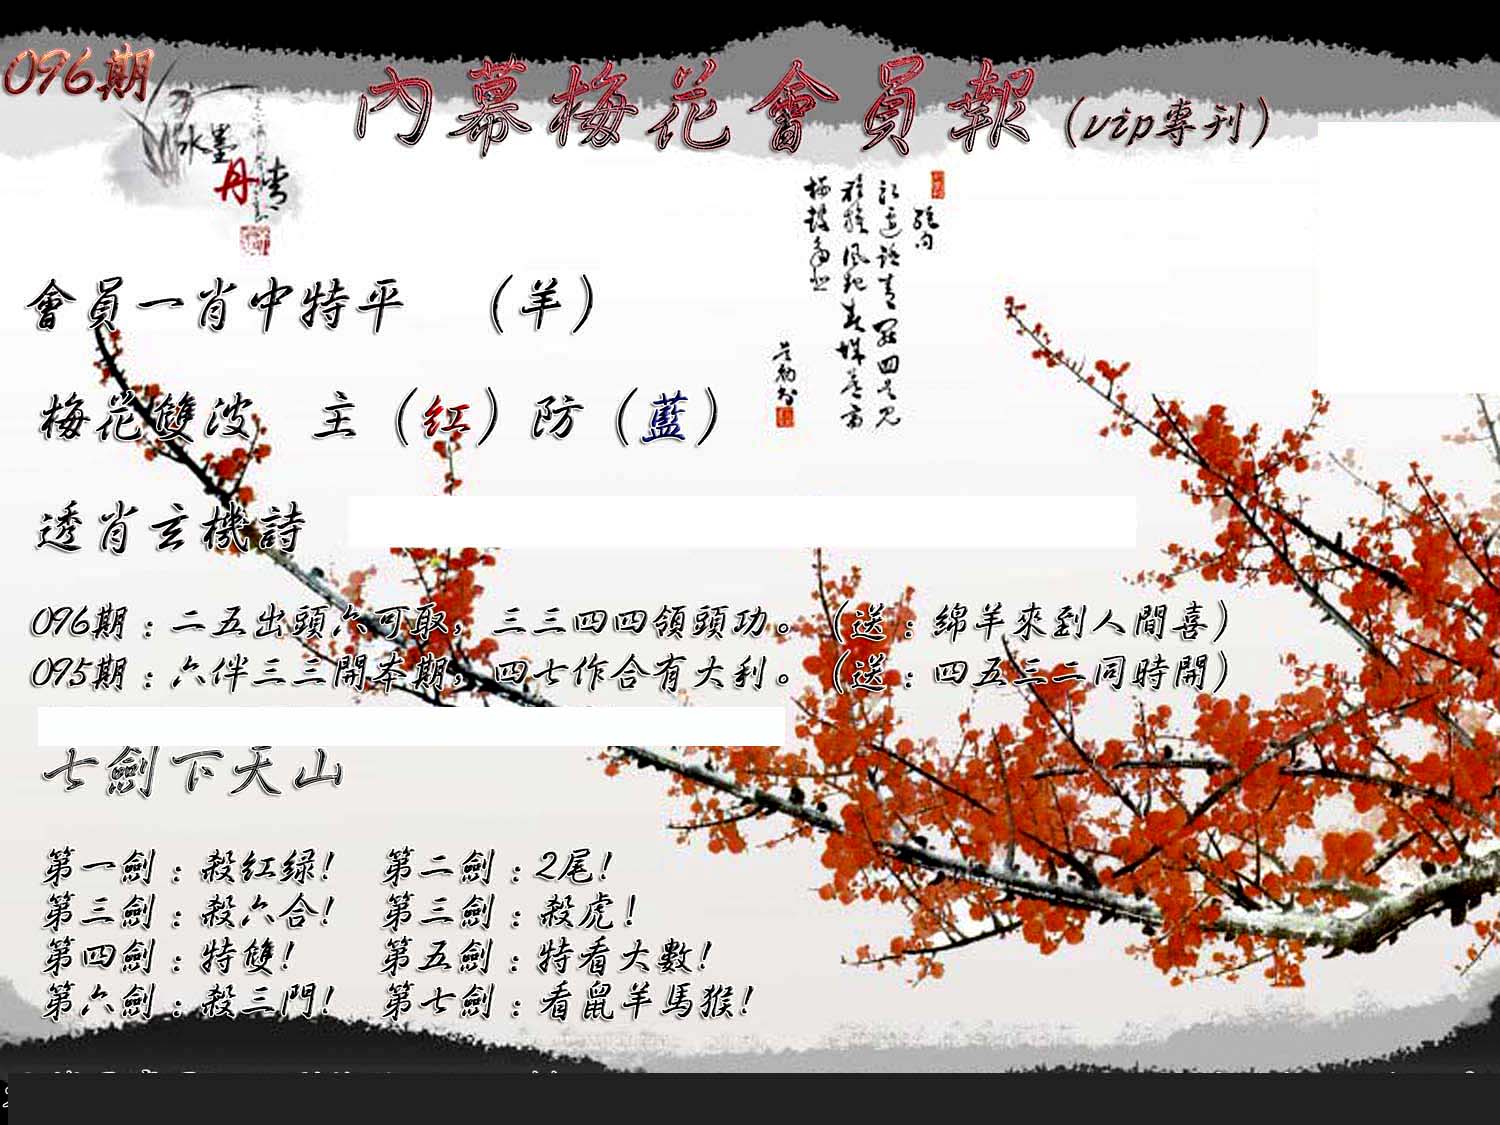 096期
內幕梅花會員報(vip專刊)
水墨
丹青
會員一肖中特平 (羊)
梅花雙波 主(紅)防(藍)
透肖玄機詩
096期:二五出頭六可取,三三四四領頭功。(送:綿羊來到人間喜)
095期:六伴三三開本期,四七作合有大利。(送:四五三二同時開)
七劍下天山
第一劍:殺紅綠! 第二劍:2尾!
第三劍:殺六合! 第三劍:殺虎!
第四劍:特雙! 第五劍:特看大數!
第六劍:殺三門! 第七劍:看鼠羊馬猴!